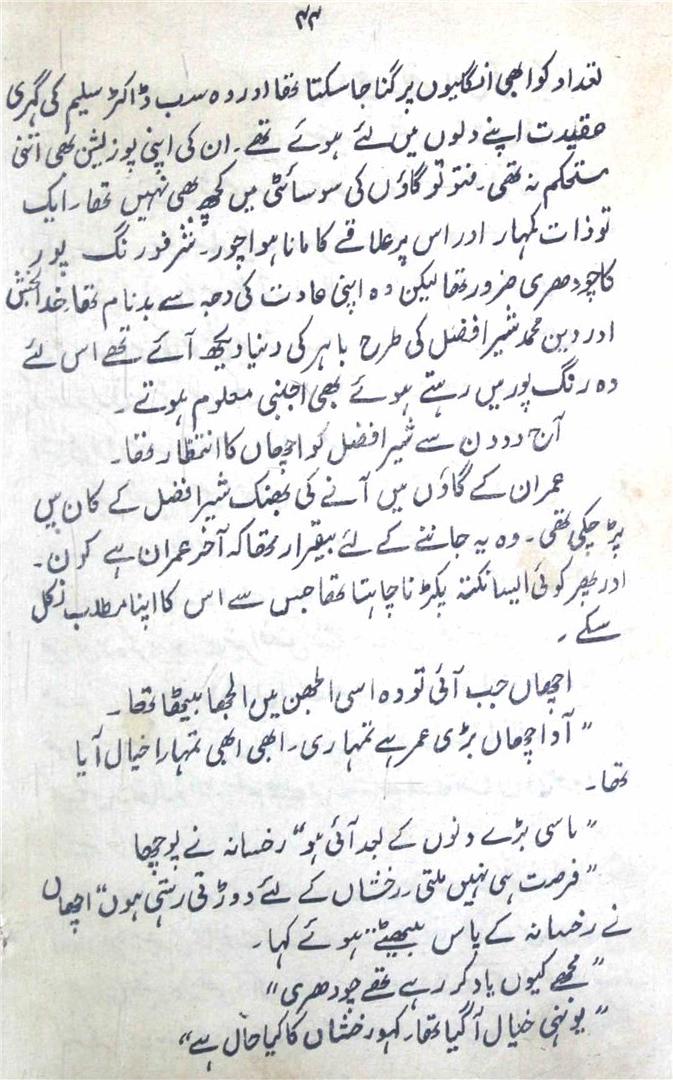 ۴۴
تعداد کو ابھی انگلیوں پر گنا جا سکتا تھا اور وہ سب ڈاکٹر سلیم کی گہری
عقیدت اپنے دلوں میں لئے ہوئے تھے۔ ان کی اپنی پوزیشن بھی اتنی
مستحکم نہ تھی۔ فتو تو گاؤں کی سوسائٹی میں کچھ بھی نہیں تھا۔ ایک
تو ذات کمہار اور اس پر علاقے کا مانا ہوا چور۔ شرفو رنگ پور
کا چودھری ضرور تھا لیکن وہ اپنی عادت کی وجہ سے بدنام تھا۔ خدا بخش
اور دین محمد شیر افضل کی طرح باہر کی دنیا دیکھ آئے تھے اس لئے
وہ رنگ پور میں رہتے ہوئے بھی اجنبی معلوم ہوتے۔
آج دو دن سے شیر افضل کو اچھاں کا انتظار تھا۔
عمران کے گاؤں میں آنے کی بھنک شیر افضل کے کان میں
پڑ چکی تھی۔ وہ یہ جاننے کے لئے بیقرار تھا کہ آخر عمران ہے کون۔
اور پھر کوئی ایسا نکتہ پکڑنا چاہتا تھا جس سے اس کا اپنا مطلب نکل
سکے۔
اچھاں جب آئی تو وہ اسی الجھن میں الجھا بیٹھا تھا۔
”آؤ اچھاں بڑی عمر ہے تمہاری۔ ابھی ابھی تمہارا خیال آیا
تھا۔
”ماسی بڑے دنوں کے بعد آئی ہو“ رخسانہ نے پوچھا
”فرصت ہی نہیں ملتی۔ رخشاں کے لئے دوڑتی رہتی ہوں“ اچھاں
نے رخسانہ کے پاس بیٹھتے ہوئے کہا۔
”مجھے کیوں یاد کر رہے تھے چودھری“
”یونہی خیال آ گیا تھا۔ کہو رخشاں کا کیا حال ہے“